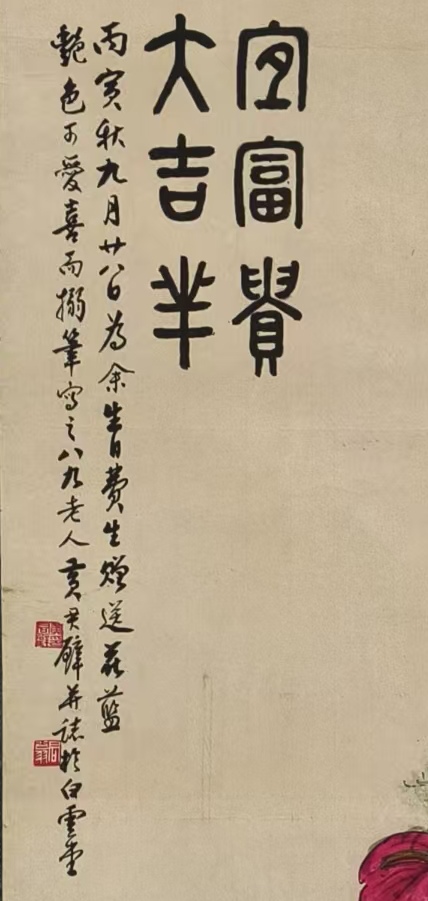 宜富貴
大吉羊
丙寅秋九月廿八日為余生日費生贈送花藍
艷色可愛喜而搦筆寫之八九老人黃君璧并誌於白雲堂